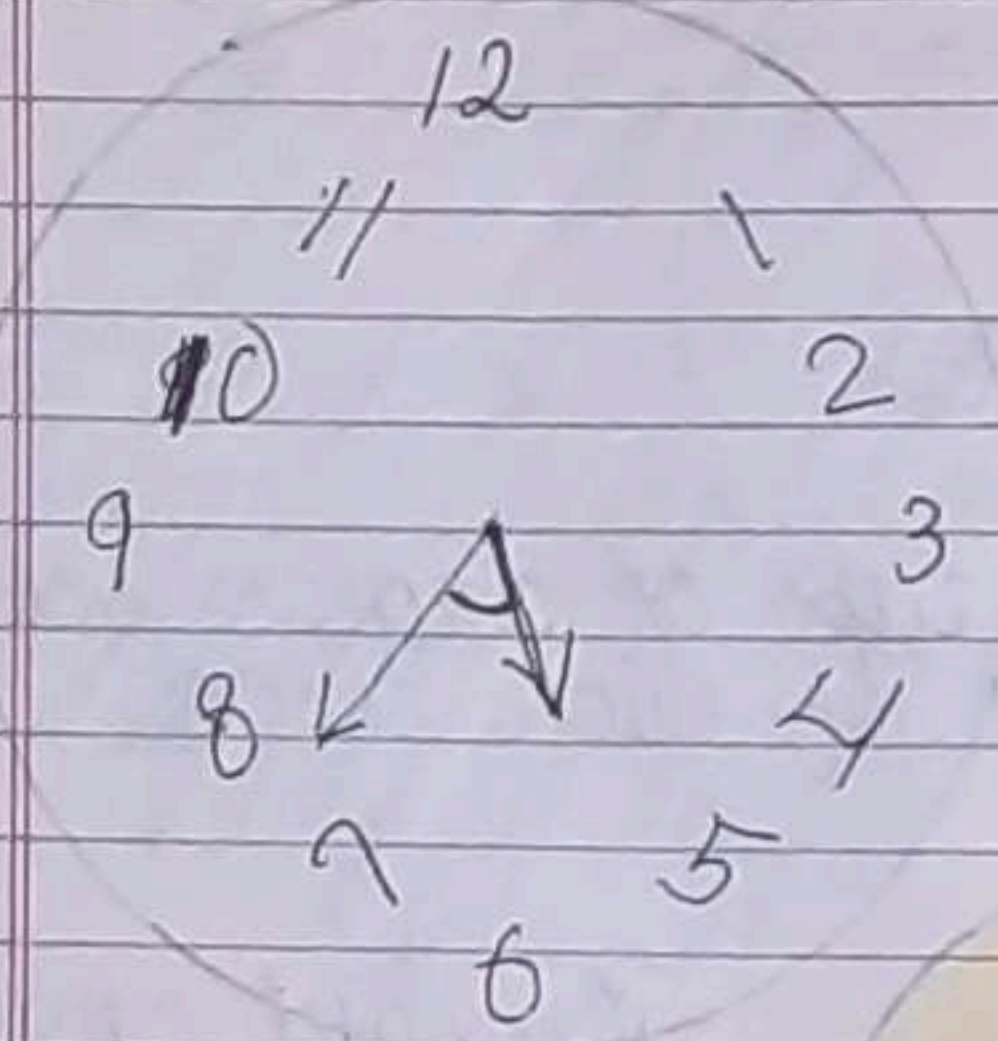 12
11 1
10 2
9 3
8 4
7 5
6